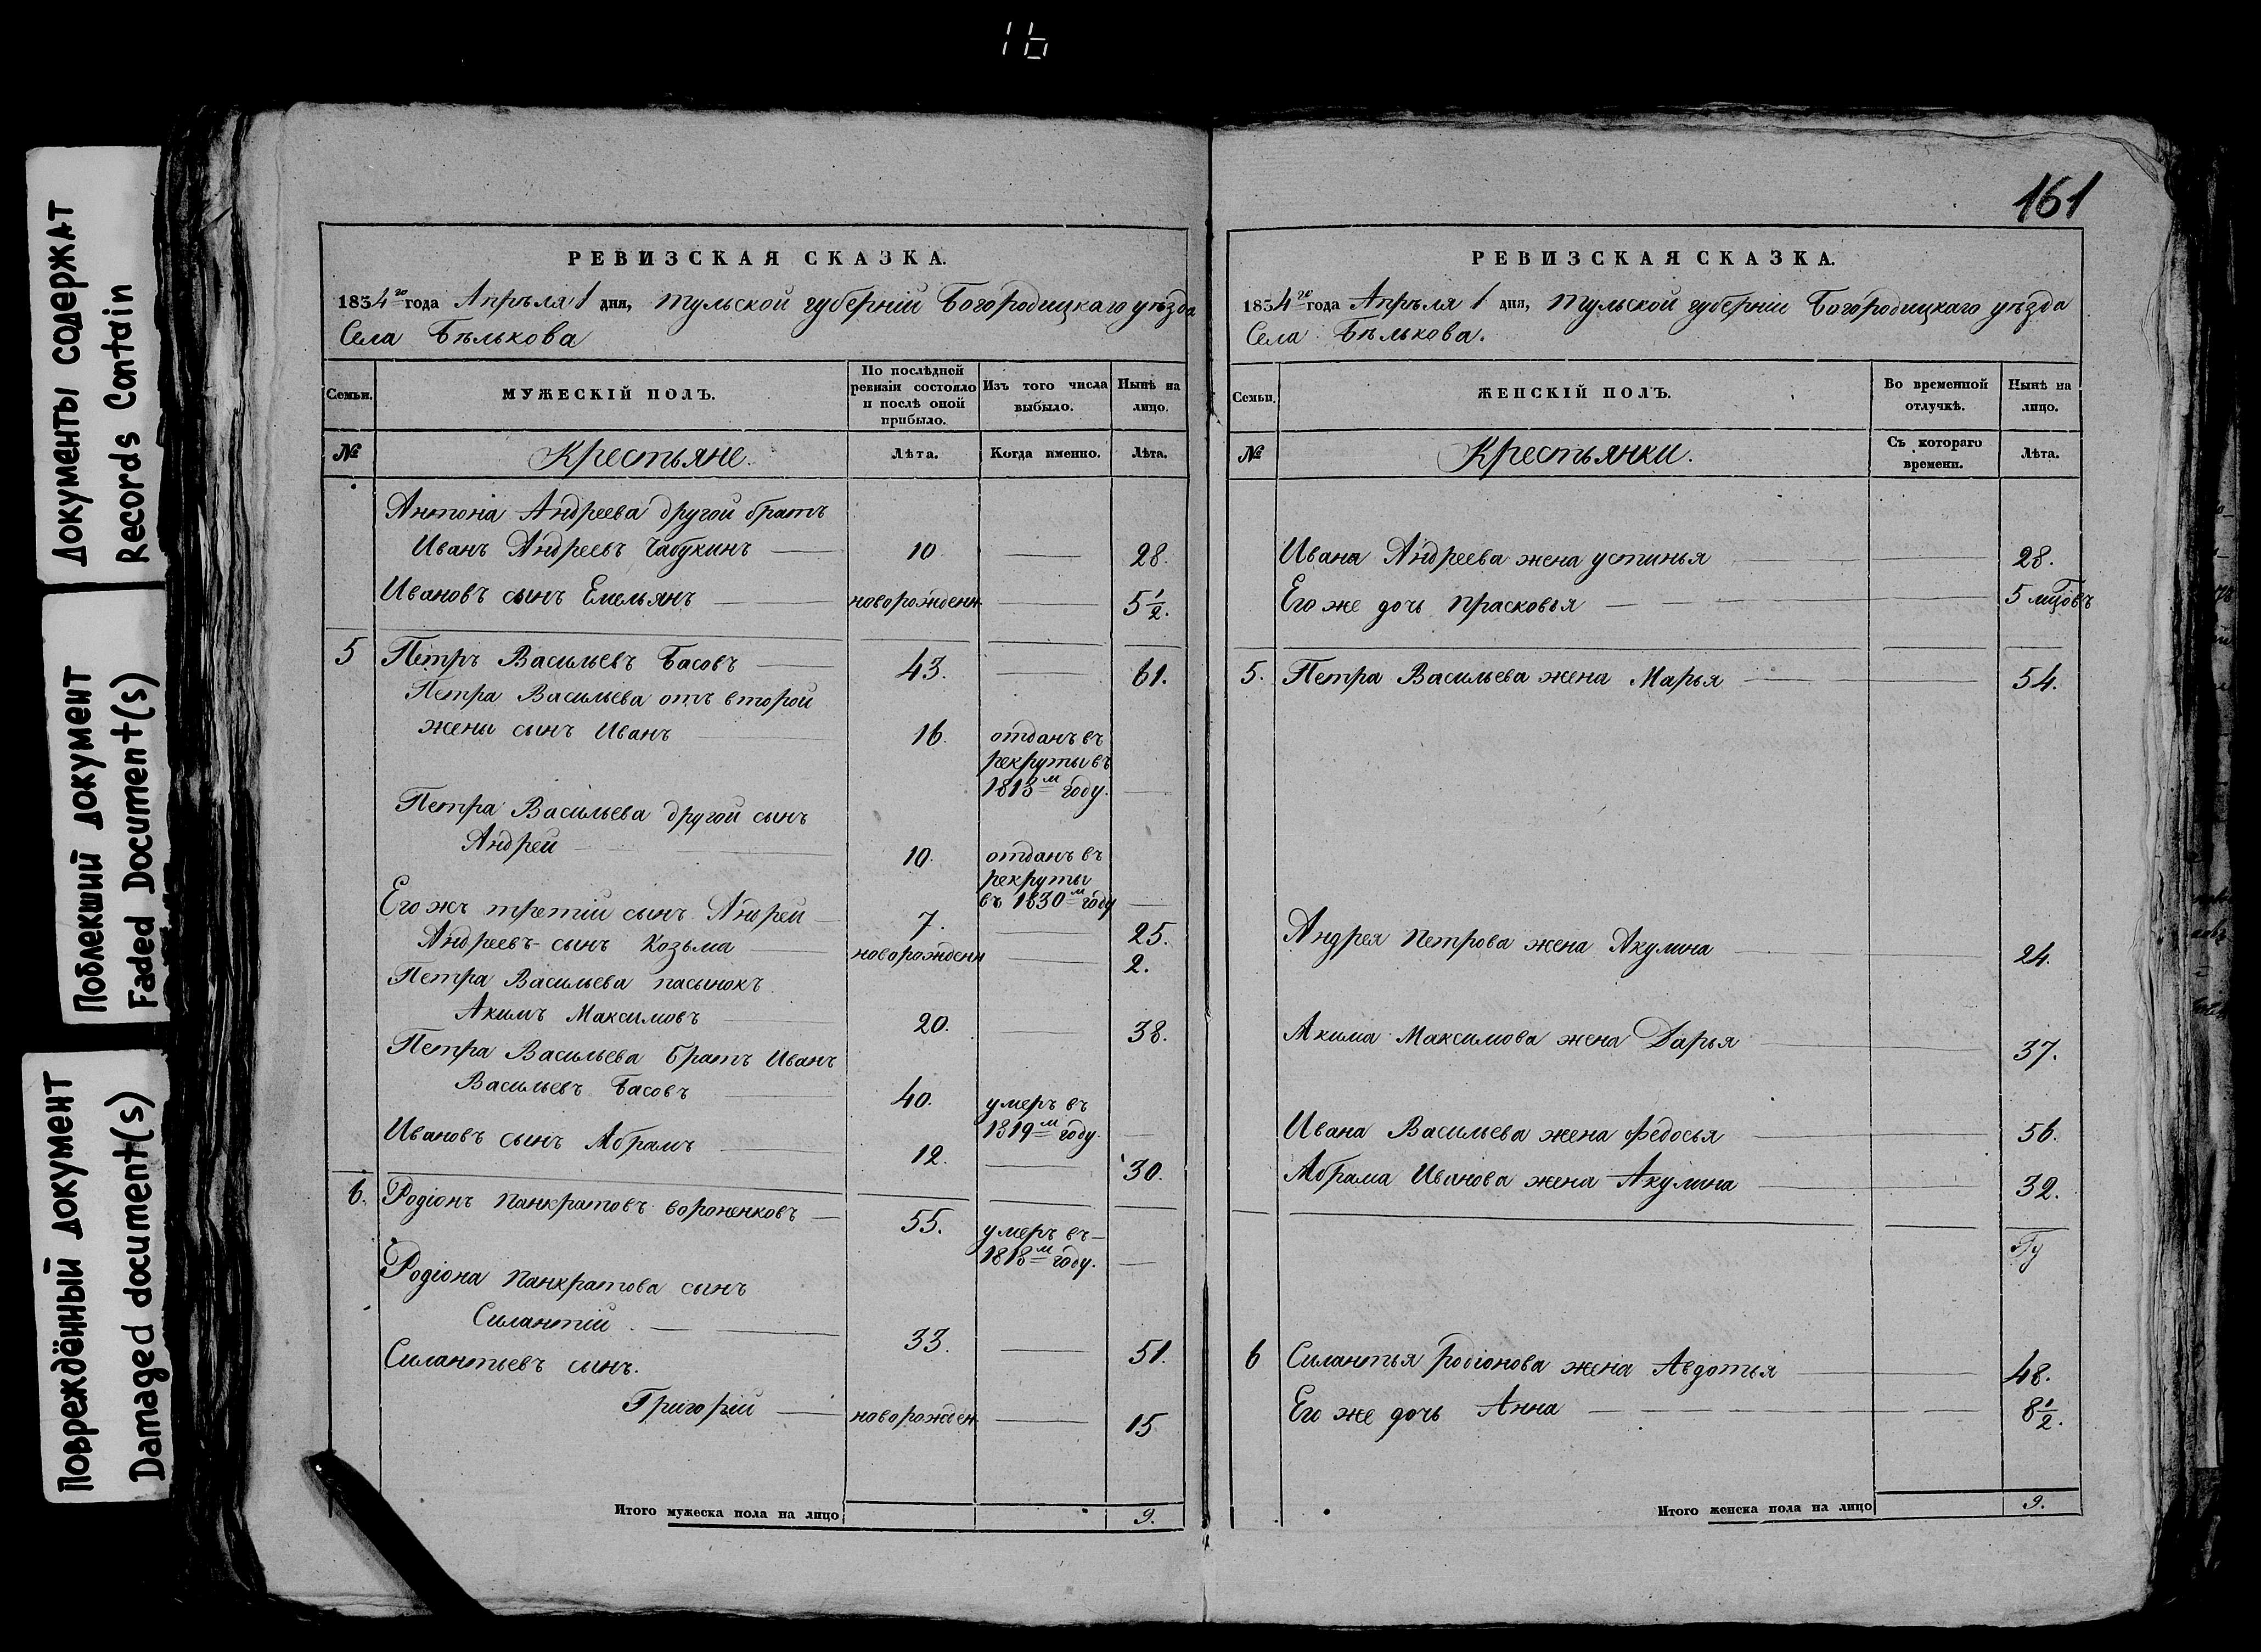 16
Документы содержат
Records Contain
Поблекший документ
Faded Document(s)
Повреждённый документ
Damaged document(s)
РЕВИЗСКАЯ СКАЗКА.
1834го года Апрѣля 1 дня, Тульской губерніи Богородицкаго уѣзда
Села Бѣлькова
Семьи.
МУЖЕСКІЙ ПОЛЪ.
По послѣдней ревизіи состояло и послѣ оной прибыло.
Изъ того числа выбыло.
Нынѣ на лицо.
№
Крестьяне.
Лѣта.
Когда именно.
Лѣта.
Антона Андреева другой братъ
Иванъ Андреевъ Чабукинъ — 10 — 28.
Ивановъ сынъ Емельянъ — новорожденн — 5 1/2.
5 Петръ Васильевъ Басовъ — 43. — 61.
Петра Васильева отъ второй
жены сынъ Иванъ — 16. отданъ въ
рекруты въ
1818м году. —
Петра Васильева другой сынъ
Андрей — 10. отданъ въ
рекруты
въ 1830м году —
Его жъ третій сынъ Андрей — 7. — 25.
Андреевъ сынъ Козьма — новорожденн — 2.
Петра Васильева пасынокъ
Акимъ Максимовъ — 20. — 38.
Петра Васильева братъ Иванъ
Васильевъ Басовъ — 40. умеръ въ
1819м году. —
Ивановъ сынъ Абрамъ — 12. — 30.
6. Родіонъ Панкратовъ Вороненковъ — 55. умеръ въ
1818м году. —
Родіона Панкратова сынъ
Силантій — 33. — 51.
Силантьевъ сынъ.
Григорій — новорожден. — 15
Итого мужеска пола на лицо 9.
161
РЕВИЗСКАЯ СКАЗКА.
1834го года Апрѣля 1 дня, Тульской губерніи Богородицкаго уѣзда
Села Бѣлькова.
Семьи.
ЖЕНСКІЙ ПОЛЪ.
Во временной отлучкѣ.
Нынѣ на лицо.
№
Крестьянки.
Съ котораго времени.
Лѣта.
Ивана Андреева жена Устинья — 28.
Его же дочь Прасковья — 5 мцовъ
5. Петра Васильева жена Марья — 54.
Андрея Петрова жена Акулина — 24.
Акима Максимова жена Дарья — 37.
Ивана Васильева жена Федосья — 56.
Абрама Иванова жена Акулина — 32.
6 Силантья Родіонова жена Авдотья — 48.
Его же дочь Анна — 8 1/2.
Итого женска пола на лицо 9.